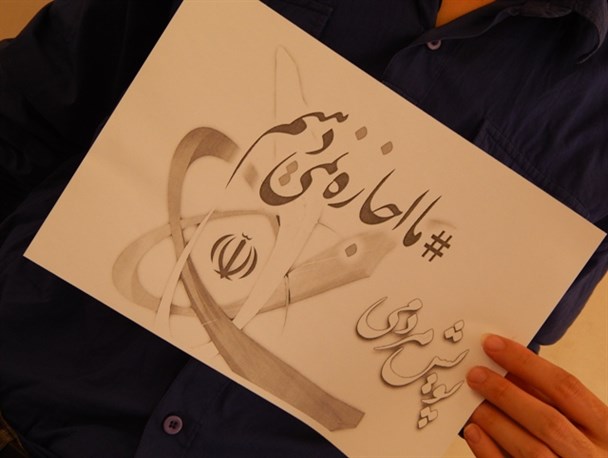 #ما اجازه نمی دهیم
پویش مردمی